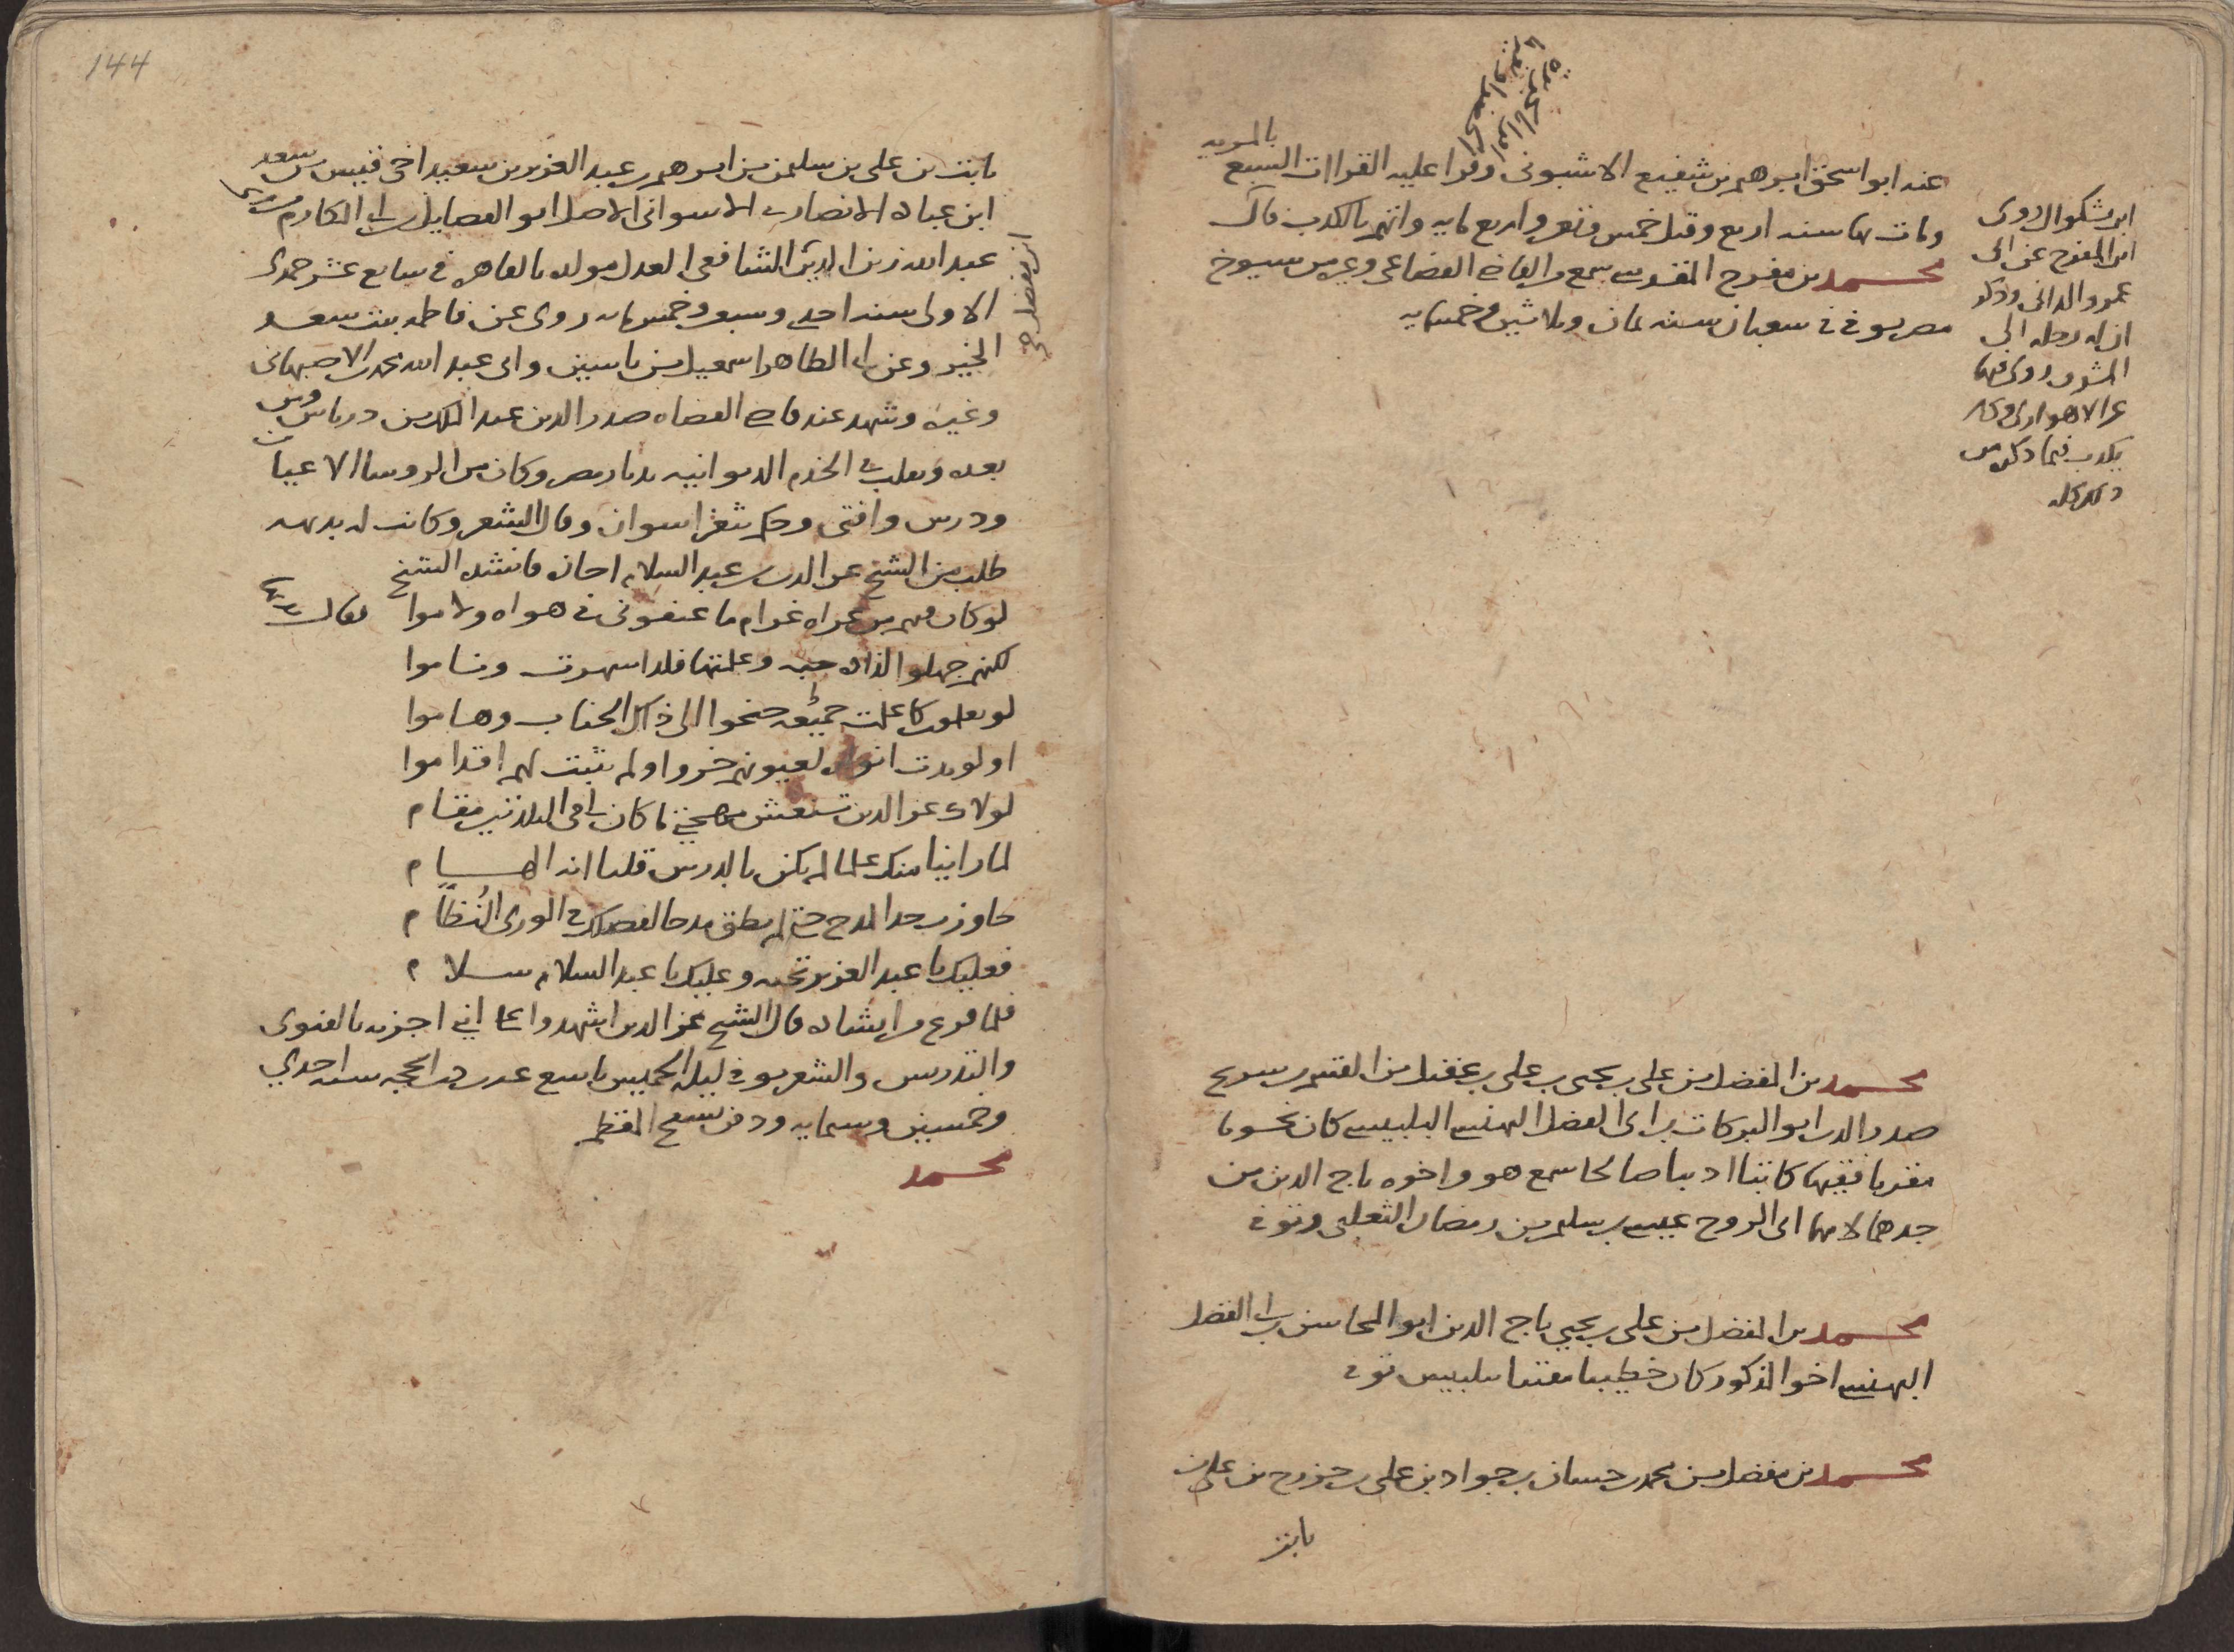 عند ابو اسحق ابرهيم بن شفيع الاشبونى وقرا عليه القراات السبع
بالمريه
ومات بها سنه اربع وقيل خمس وتسعين واربع مايه واتهم بالكذب قال
ابن بشكوال روى
ابن المفرج عن ابى
عمرو الدانى وذكر
ان له رحله الى
المشرق روى فيها
عن الاهوازى وكان
يكذب فيما ذكره من
ذلك كله
محمد بن مفرح المقدسى سمع من القاضى القضاعى وغيره من شيوخ
مصر توفى فى شعبان سنه ثمان وثلاثين وخمسمايه
محمد بن المفضل بن على بن يحيى بن على بن عقيل بن القسم بن سريج
صدر الدين ابو البركات بن ابى الفضل البهنسى البلبيسى كان نحويا
مقريا فقيها كاتبا اديبا صالحا سمع هو واخوه تاج الدين من
جدهما لامهما ابى الروح عيسى بن سليم بن رمضان الثعلبى وتوفى
محمد بن المفضل بن على بن يحيى تاج الدين ابو المحاسن بن ابى الفضل
البهنسى اخو المذكور كان خطيبا مفتيا ببلبيس توفى
محمد بن مفضل بن محمد بن حسان بن جواد بن على بن خزرج بن على بن
ثابت
144
ثابت بن على بن سليمن بن ابرهيم بن عبد العزيز بن سعيد اخى قيس بن سعد
ابن عباده الانصارى الاسوانى الاصل ابو الفضايل بن ابى المكارم
عبد الله زين الدين الشافعى العدل مولده بالقاهره فى سابع عشر جمدى
الاولى سنه احدى وسبعين وخمسمايه روى عن فاطمه بنت سعد
الخير وعن ابى الطاهر اسمعيل بن ياسين وابى عبد الله محمد الاصبهانى
وغيره وشهد عند قاضى القضاه صدر الدين عبد الملك بن درباس ومن
بعده وتقلب فى الخدم الديوانيه بديار مصر وكان من الروسا الاعيان
ودرس وافتى وحكم بثغر اسوان وقال الشعر وكانت له بديهه
طلب من الشيخ عز الدين بن عبد السلام اجازه فانشده الشيخ
لو كان فيهم من عراه غرام ما عنفونى فى هواه ولاموا فقال
لكنهم جهلوا لذاذه حبه وعلمتها فلذا سهرت وناموا
لو يعلمون كما علمت حقيقه جنحوا الى ذاك الجناب وهاموا
او لو بدت انواره لعيونهم خروا ولم تثبت لهم اقداموا
لولاك عز الدين تنعش مهجتى ما كان لى فى البلدتين مقام
لما راينا منك علما لم يكن بالدرس قلنا انه الهام
جاوزت حد المدح حتى لم يطق مدحا لفضلك فى الورى النظام
فعليك يا عبد العزيز تحيه وعليك يا عبد السلام سلام
فلما فرغ من انشاده قال الشيخ عز الدين اشهدوا على انى اجزته بالفتوى
والتدريس والشعر توفى ليله الخميس تاسع عشر ذى الحجه سنه احدى
وخمسين وستمايه ودفن بسفح المقطم
محمد